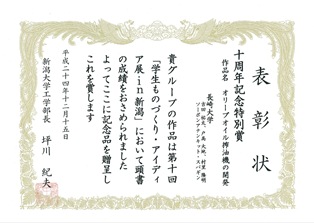 表彰状
十周年記念特別賞
作品名 オリーブオイル搾油機の開発
長崎大学
貴グループの作品は第十回
「学生ものづくり・アイディ
ア展・in新潟」において頭書
の成績をおさめられました
よってここに記念品を贈呈し
これを賞します
平成二十四年十二月十五日
新潟大学工学部長 坪川 紀夫